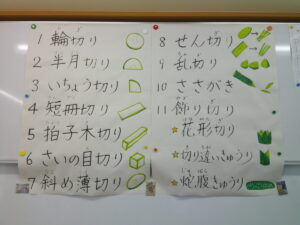 1 輪切り
2 半月切り
3 いちょう切り
4 短冊切り
5 拍子木切り
6 さいの目切り
7 斜め薄切り
8 せん切り
9 乱切り
10 ささがき
11 飾り切り
☆ 花形切り
☆ 切り違いきゅうり
☆ 蛇腹きゅうり